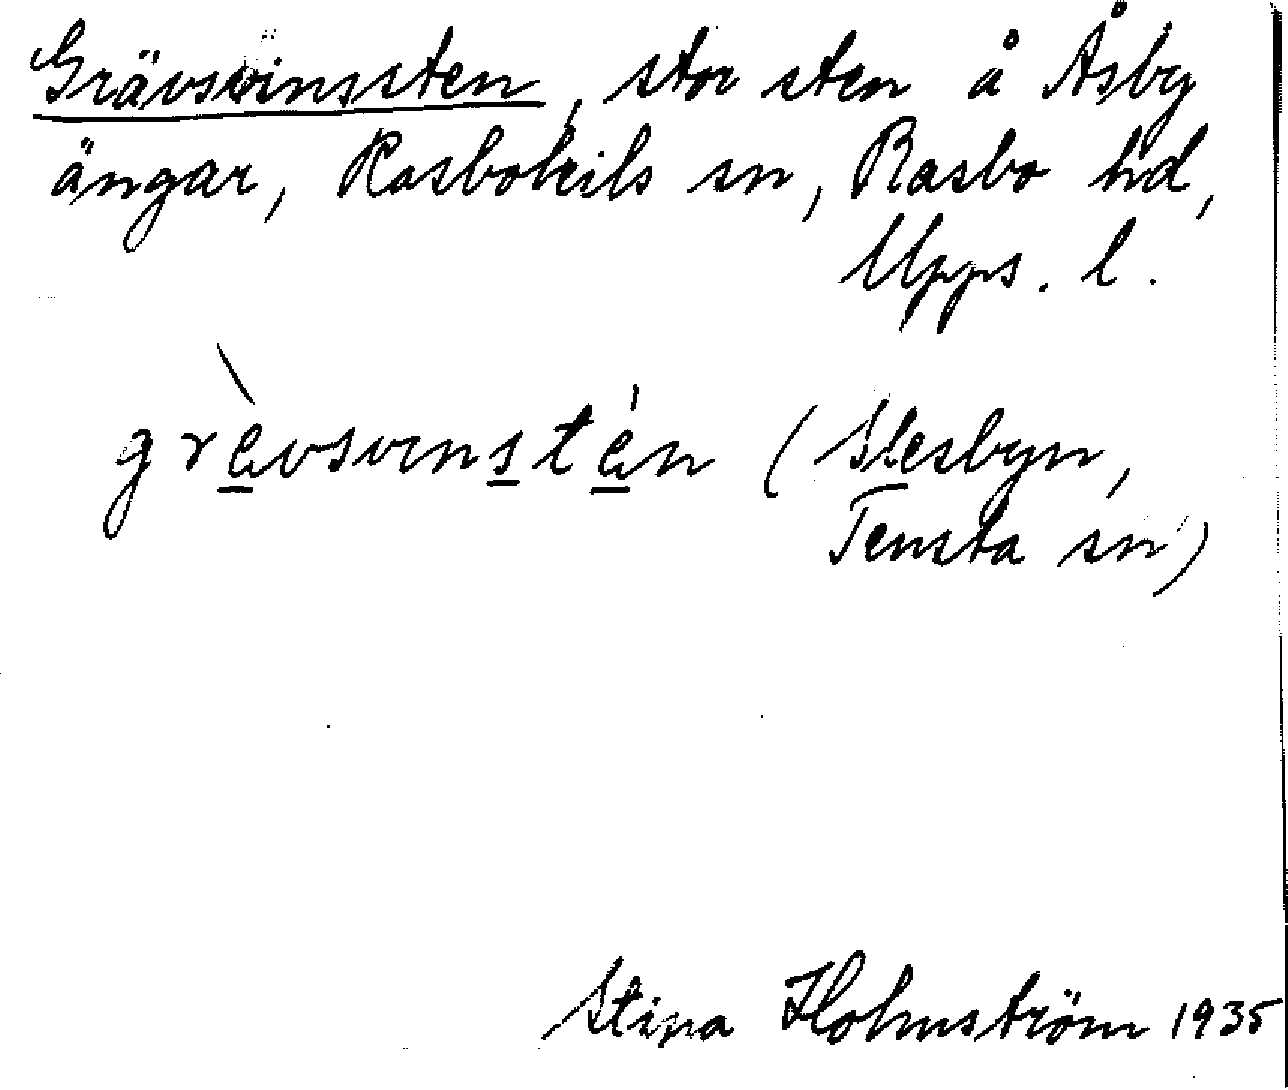 Grävsvinssten, stor sten å Åsby
ängar, Rasbokils sn, Rasbo hd,
Upps. l.
grèvsvinstén (Slesbyn,
Tensta sn)
Stina Holmström 1935